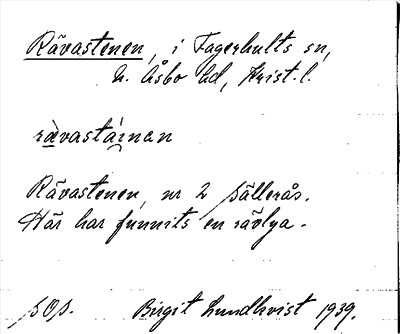 Rävastenen, i Fagerhults sn,
N. Åsbo hd, Krist. l.
rävastäinan
Rävastenen, nr 2 Sällerås.
Här har funnits en rävlya.
SOS. Birgit Lundkvist 1939.